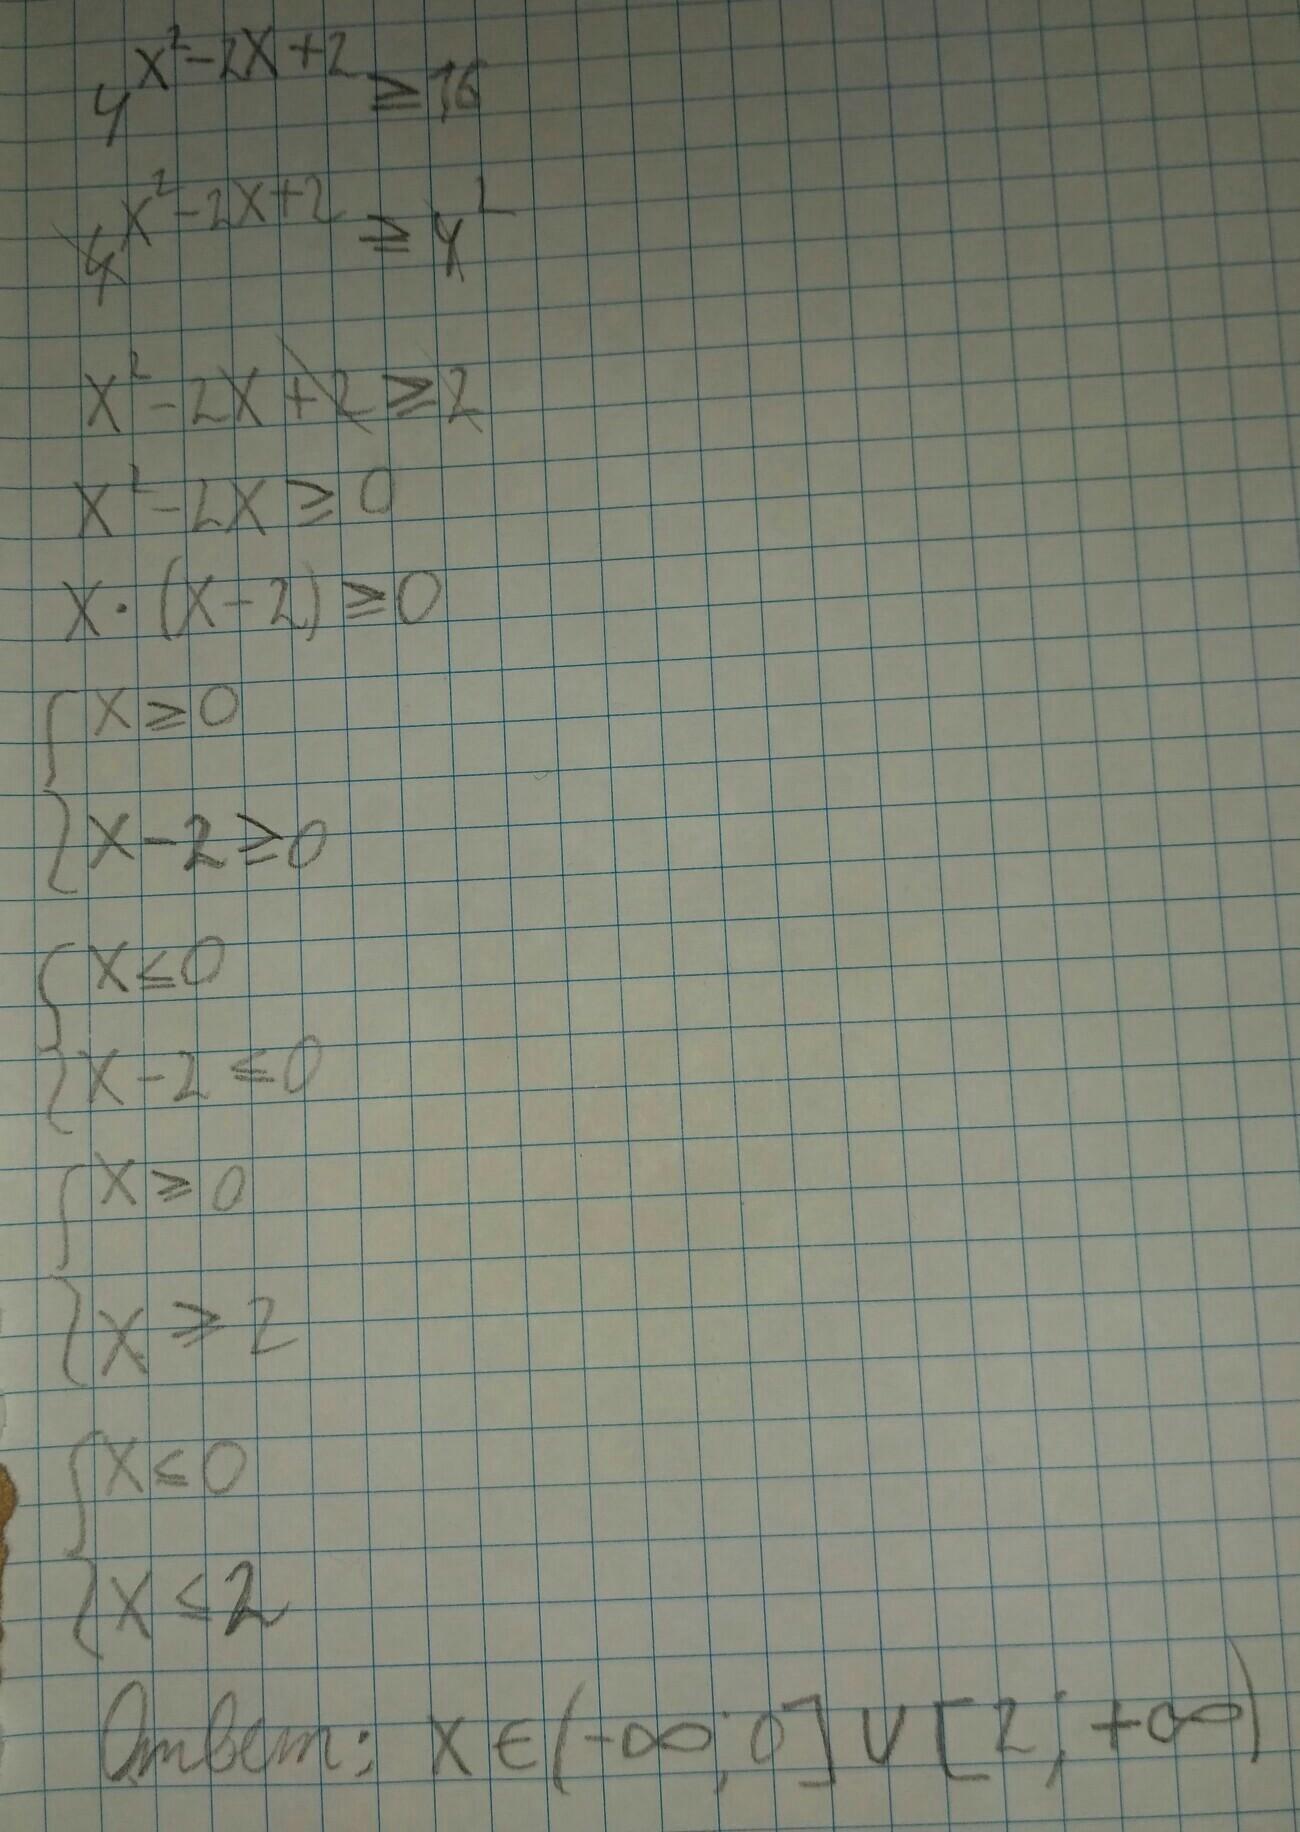 4^{x²-2x+2} ≥ 16
4^{x²-2x+2} ≥ 4²
x²-2x+2 ≥ 2
x²-2x ≥ 0
x·(x-2) ≥ 0
{x ≥ 0
{x-2 ≥ 0
{x ≤ 0
{x-2 ≤ 0
{x ≥ 0
{x ≥ 2
{x ≤ 0
{x ≤ 2
Ответ: x∈(-∞;0]∪[2;+∞)